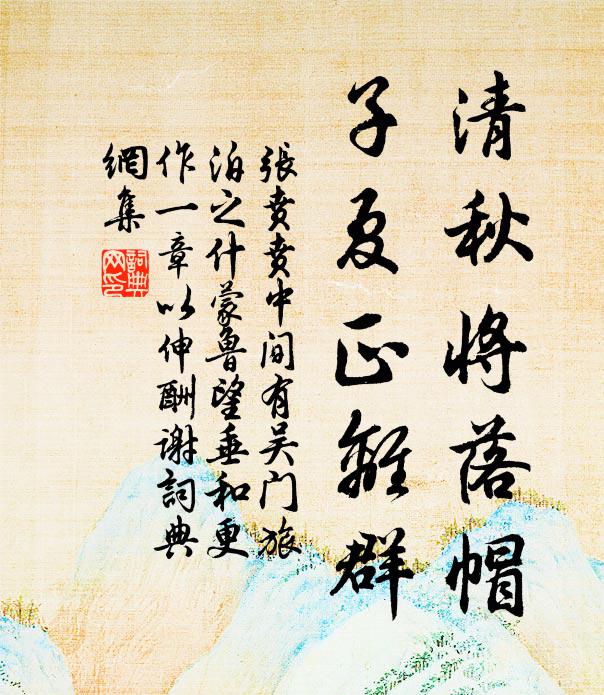 清秋將落帽
子夏正離群
張賁賁中间有吴门旅
泊之什蒙魯望垂和更
作一章以伸酬谢詞典
網集
詞典網印